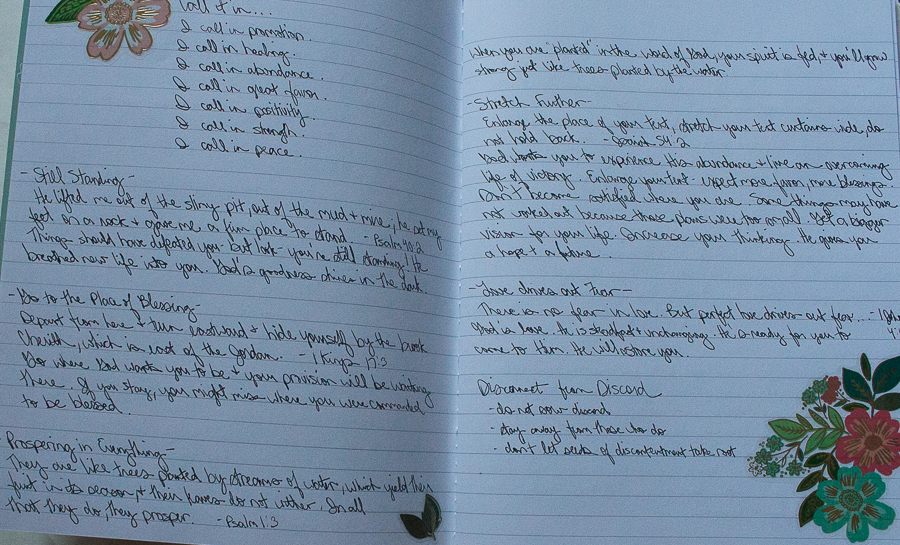 Call it in...
I call in promotion.
I call in healing.
I call in abundance.
I call in great favor.
I call in positivity.
I call in strength.
I call in peace.
- Still Standing -
He lifted me out of the slimy pit, out of the mud + mire, he set my
feet on a rock + gave me a firm place to stand. - Psalm 40:2
Things should have defeated you but look - you're still standing! He
breathed new life into you. God's goodness shines in the dark.
- Go to the Place of Blessing -
Depart from here + turn eastward + hide yourself by the brook
Cherith, which is east of the Jordan. - 1 Kings 17:3
Go where God wants you to be + your provision will be waiting
there. If you stay, you might miss where you were commanded
to be blessed.
Prospering in Everything -
They are like trees planted by streams of water, which yield their
fruit in its season, + their leaves do not wither. In all
that they do, they prosper. - Psalm 1:3
When you are "planted" in the word of God, your spirit is fed, + you'll grow
strong just like trees planted by the water.
- Stretch Further -
Enlarge the place of your tent, stretch your tent curtains wide, do
not hold back. - Isaiah 54:2
God wants you to experience His abundance + live an overcoming
life of victory. Enlarge your tent - expect more favor, more blessings.
Don't become satisfied where you are. Some things may have
not worked out because those plans were too small. Get a bigger
vision for your life. Increase your thinking. He gives you
a hope + a future.
- Love drives out Fear -
There is no fear in love. But perfect love drives out fear... - 1 John
God is love. He is steadfast + unchanging. He is ready for you to
come to Him. He will restore you.
Disconnect from Discord
- do not sow discord
- stay away from those who do
- don't let seeds of discontentment take root